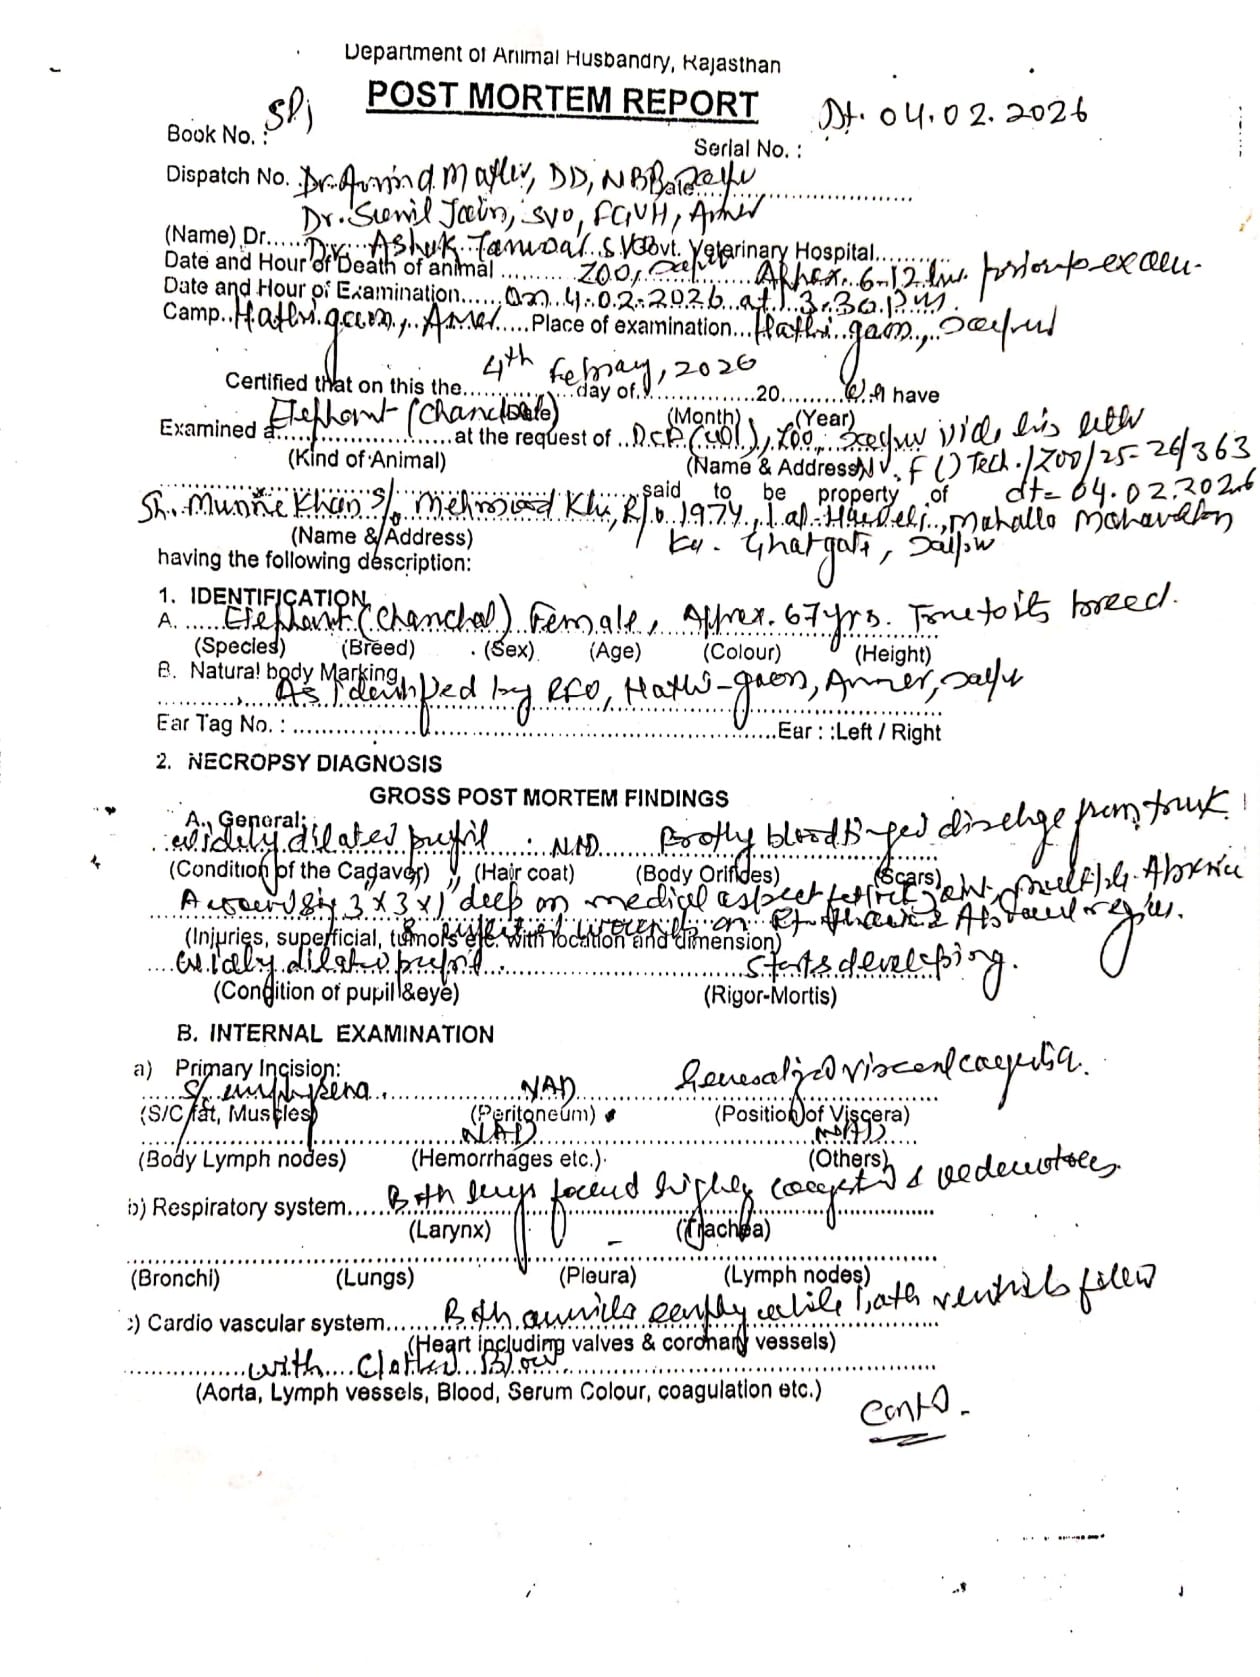 Department of Animal Husbandry, Rajasthan
POST MORTEM REPORT
Dt. 04.02.2026
Book No. :
Serial No. :
Dispatch No. Dr. Arvind Mathur, DD, NBB
Dr. Sunil Jain, SVO, FGVH, Amer
(Name) Dr. Dr. Ashok Tanwar, SVO Govt. Veterinary Hospital
Date and Hour of Death of animal Zoo, Approx. 6-12 hrs. prior to exam.
Date and Hour of Examination on 4.02.2026 at 3.30 P.M.
Camp Hathi gaon, Amer Place of examination Hathi gaon,
4th Febray, 2026
Certified that on this the day of 20 have
Elephant (Chanchal) (Month) (Year)
Examined a at the request of D.C.F. (WL), Zoo, vide his letter
(Kind of Animal) (Name & Address) F () Tech./Zoo/25-26/363
said to be property of dt= 04.02.2026
Sh. Munne Khan S/o Mehmood Kh, R/o 1974, Lal Haveli, Mahalla
(Name & Address) Ghatgate,
having the following description:
1. IDENTIFICATION
A. Elephant (Chanchal) Female, Approx. 67 yrs. True to its breed.
(Species) (Breed) (Sex) (Age) (Colour) (Height)
B. Natural body Marking
As Identified by RFO, Hathi-gaon, Amer,
Ear Tag No. : Ear : :Left / Right
2. NECROPSY DIAGNOSIS
GROSS POST MORTEM FINDINGS
A. General:
widely dilated pupil NAD Frothy blood tinged dischge from trunk
(Condition of the Cadaver) (Hair coat) (Body Orifices) (Scars)
A wound 3 x 3 x 1 deep on medial aspect multiple
(Injuries, superficial, tumors etc. with location and dimension)
widely dilated pupil Starts developing.
(Condition of pupil & eye) (Rigor-Mortis)
B. INTERNAL EXAMINATION
a) Primary Incision:
S/c emphysema NAD Generalized visceral congestion.
(S/C fat, Muscles) (Peritoneum) (Position of Viscera)
NAD NAD
(Body Lymph nodes) (Hemorrhages etc.) (Others)
b) Respiratory system Both lungs found highly congested & oedematous
(Larynx) (Trachea)
(Bronchi) (Lungs) (Pleura) (Lymph nodes)
c) Cardio vascular system Both auricles empty while both ventricls filled
(Heart including valves & coronary vessels)
with Clotted Blood
(Aorta, Lymph vessels, Blood, Serum Colour, coagulation etc.)
Contd.